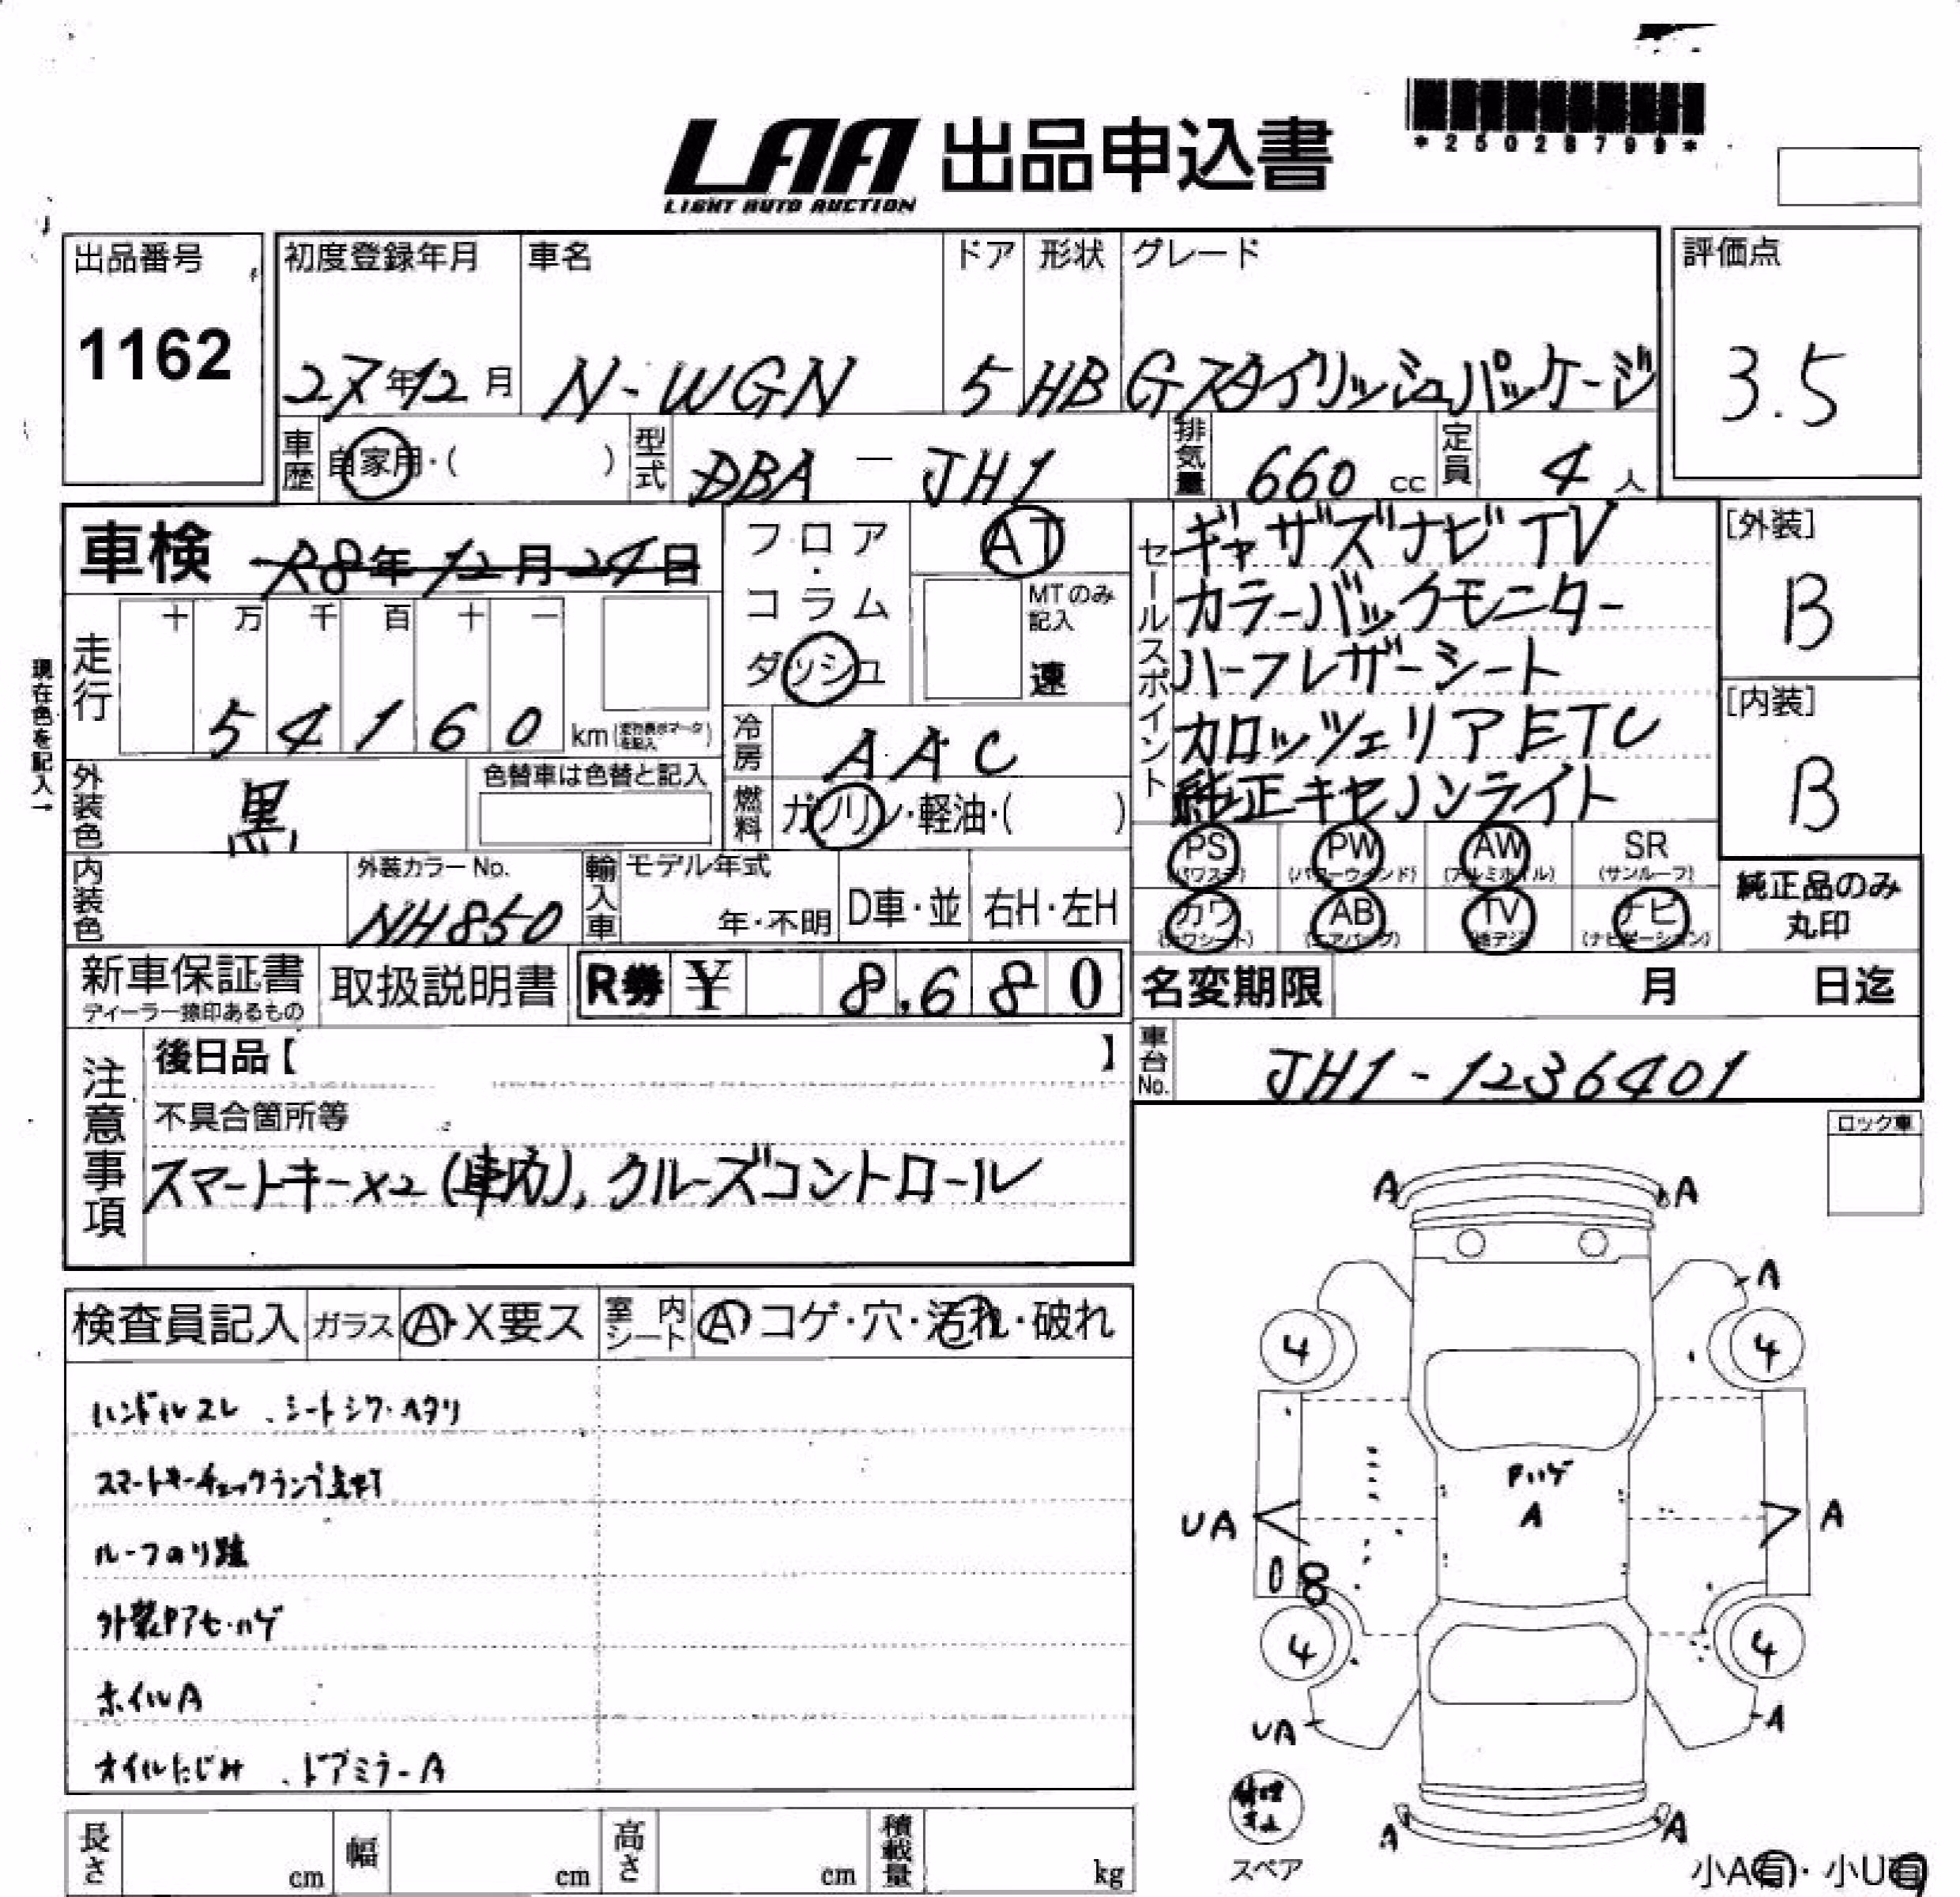 LAA 出品申込書
LIGHT AUTO AUCTION
*25028799*
出品番号
1162
初度登録年月
27年12月
車名
N-WGN
ドア
5
形状
HB
グレード
Gスタイリッシュパッケージ
評価点
3.5
車歴
自家用・( )
型式
DBA - JH1
排気量
660 cc
定員
4 人
車検 R8年12月24日
フロア・コラム
ダッシュ
AT
MTのみ記入
速
セールスポイント
ギャザズナビTV
カラーバックモニター
ハーフレザーシート
カロッツェリアETC
純正キセノンライト
[外装]
B
[内装]
B
現在色を記入→
走行
十 万 千 百 十 一
5 4 1 6 0 km
冷房
AAC
外装色
黒
色替車は色替と記入
燃料
ガソリン・軽油・( )
PS
(パワステ)
PW
(パワーウインド)
AW
(アルミホイル)
SR
(サンルーフ)
カワ
(カワシート)
AB
(エアバッグ)
TV
(地デジ)
ナビ
(ナビゲーション)
純正品のみ
丸印
内装色
外装カラーNo.
NH850
輸入車
モデル年式
年・不明
D車・並
右H・左H
新車保証書
ディーラー捺印あるもの
取扱説明書
R券 ¥ 8,680
名変期限 月 日迄
車台No.
JH1-1236401
注意事項
後日品【 】
不具合箇所等
スマートキーx2(車内)、クルーズコントロール
ロック車
検査員記入
ガラス
A・X要ス
室内シート
A コゲ・穴・汚れ・破れ
ハンドルスレ、シートシワ・ヘタリ
スマートキーチェックランプ点灯
ルーフのり跡
外装Pアセ・ハゲ
ホイルA
オイルにじみ、ドアミラーA
A A
A
4 4
Pハゲ
A
UA A
08
4 4
UA A
A A
修理キット
スペア
小A有・小U有
長さ cm
幅 cm
高さ cm
積載量 kg